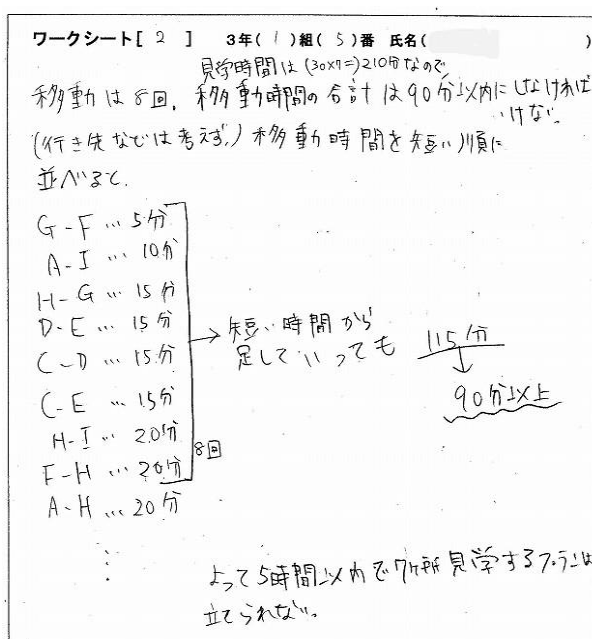 ワークシート[ 2 ] 3年( 1 )組( 5 )番 氏名( )
見学時間は(30×7=)210分なので
移動は8回, 移動時間の合計は90分以内にしなければ
いけない。
(行き先などは考えず,)移動時間を短い順に
並べると,
G-F … 5分
A-I … 10分
H-G … 15分
D-E … 15分
C-D … 15分
C-E … 15分
H-I … 20分
F-H … 20分
8回
A-H … 20分
→ 短い時間から
足していっても
115分
↓
90分以上
よって5時間以内で7ヶ所見学するプランは
立てられない。